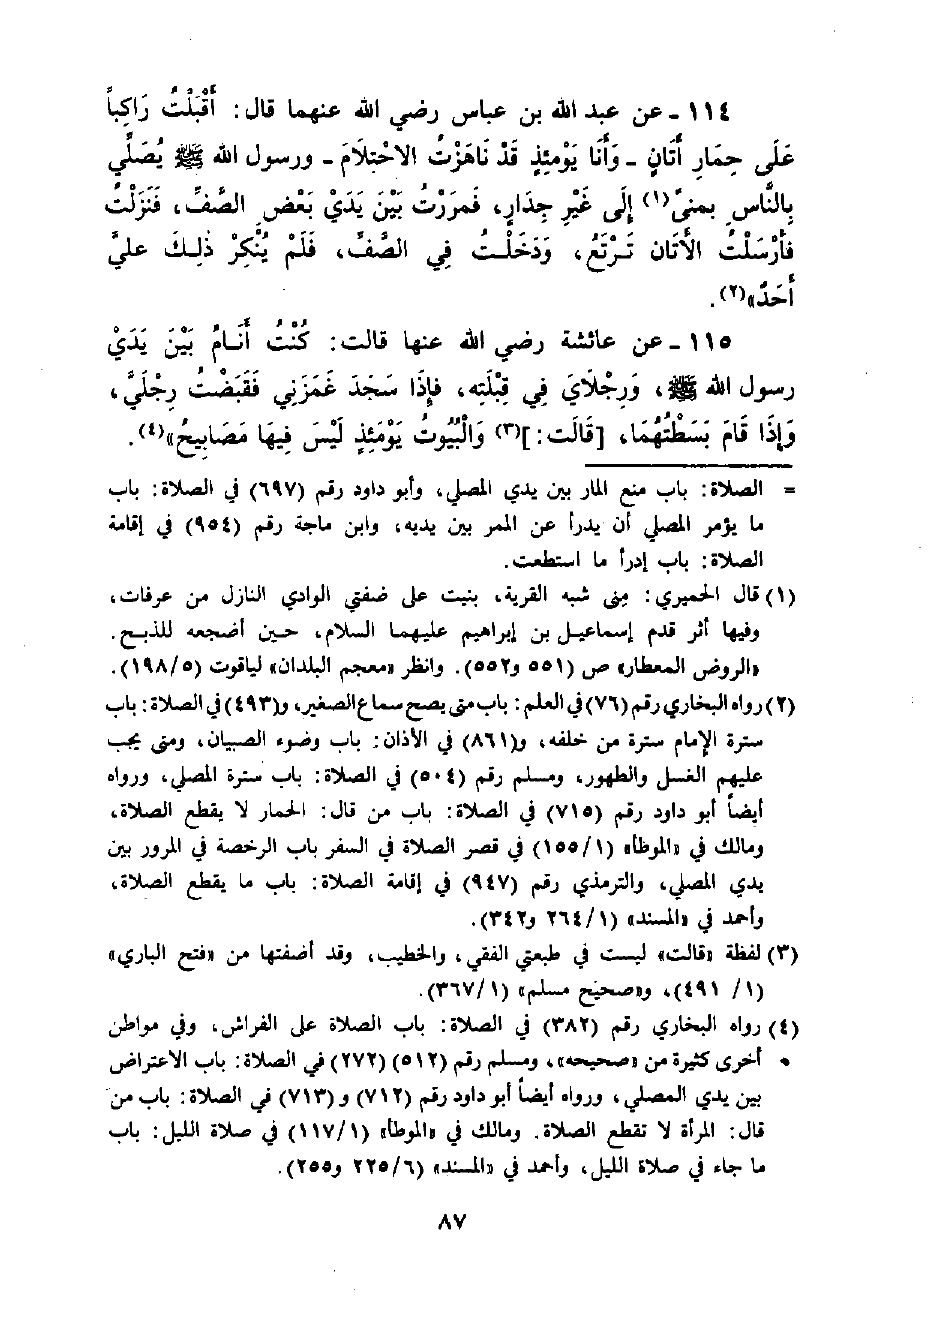 ١١٤ - عن عبد الله بن عباس رضي الله عنهما قال: أَقْبَلْتُ رَاكِباً
عَلَى حِمَارِ أَتَانٍ - وَأَنَا يَوْمَئِذٍ قَدْ نَاهَزْتُ الاحْتِلَامَ - ورسول الله ﷺ يُصَلِّي
بِالنَّاسِ بمنىً(١) إِلَى غَيْرِ جِدَارٍ، فَمرَرْتُ بَيْنَ يَدَيْ بَعْضِ الصَّفِّ، فَنَزَلْتُ
فَأَرْسَلْتُ الأَتَان تَرْتَعُ، وَدَخَلْتُ فِي الصَّفِّ، فَلَمْ يُنْكِرْ ذٰلِكَ عليَّ
أَحَدٌ»(٢).
١١٥ - عن عائشة رضي الله عنها قالت: كُنْتُ أَنَامُ بَيْنَ يَدَيْ
رسول الله ﷺ، وَرِجْلَايَ فِي قِبْلَتِهِ، فَإِذَا سَجَدَ غَمَزَنِي فَقَبَضْتُ رِجْلَيَّ،
وَإِذَا قَامَ بَسَطْتُهُمَا، [قَالَت:](٣) وَالْبُيُوتُ يَوْمَئِذٍ لَيْسَ فِيهَا مَصَابِيحُ»(٤).
= الصلاة: باب منع المار بين يدي المصلي، وأبو داود رقم (٦٩٧) في الصلاة: باب
ما يؤمر المصلي أن يدرأ عن الممر بين يديه، وابن ماجة رقم (٩٥٤) في إقامة
الصلاة: باب إدرأ ما استطعت.
(١) قال الحميري: مِنى شبه القرية، بنيت على ضفتي الوادي النازل من عرفات،
وفيها أثر قدم إسماعيل بن إبراهيم عليهما السلام، حين أضجعه للذبح.
«الروض المعطار» ص (٥٥١ و٥٥٢). وانظر «معجم البلدان» لياقوت (١٩٨/٥).
(٢) رواه البخاري رقم (٧٦) في العلم: باب متى يصح سماع الصغير، و(٤٩٣) في الصلاة: باب
سترة الإمام سترة من خلفه، و(٨٦١) في الأذان: باب وضوء الصبيان، ومتى يجب
عليهم الغسل والطهور، ومسلم رقم (٥٠٤) في الصلاة: باب سترة المصلي، ورواه
أيضاً أبو داود رقم (٧١٥) في الصلاة: باب من قال: الحمار لا يقطع الصلاة،
ومالك في «الموطأ» (١٥٥/١) في قصر الصلاة في السفر باب الرخصة في المرور بين
يدي المصلي، والترمذي رقم (٩٤٧) في إقامة الصلاة: باب ما يقطع الصلاة،
وأحمد في «المسند» (٢٦٤/١ و٣٤٢).
(٣) لفظة «قالت» ليست في طبعتي الفقي، والخطيب، وقد أضفتها من «فتح الباري»
(١/ ٤٩١)، و«صحيح مسلم» (٣٦٧/١).
(٤) رواه البخاري رقم (٣٨٢) في الصلاة: باب الصلاة على الفراش، وفي مواطن
• أخرى كثيرة من «صحيحه»، ومسلم رقم (٥١٢) (٢٧٢) في الصلاة: باب الاعتراض
بين يدي المصلي، ورواه أيضاً أبو داود رقم (٧١٢) و (٧١٣) في الصلاة: باب من
قال: المرأة لا تقطع الصلاة. ومالك في «الموطأ» (١١٧/١) في صلاة الليل: باب
ما جاء في صلاة الليل، وأحمد في «المسند» (٢٢٥/٦ و٢٥٥).
٨٧